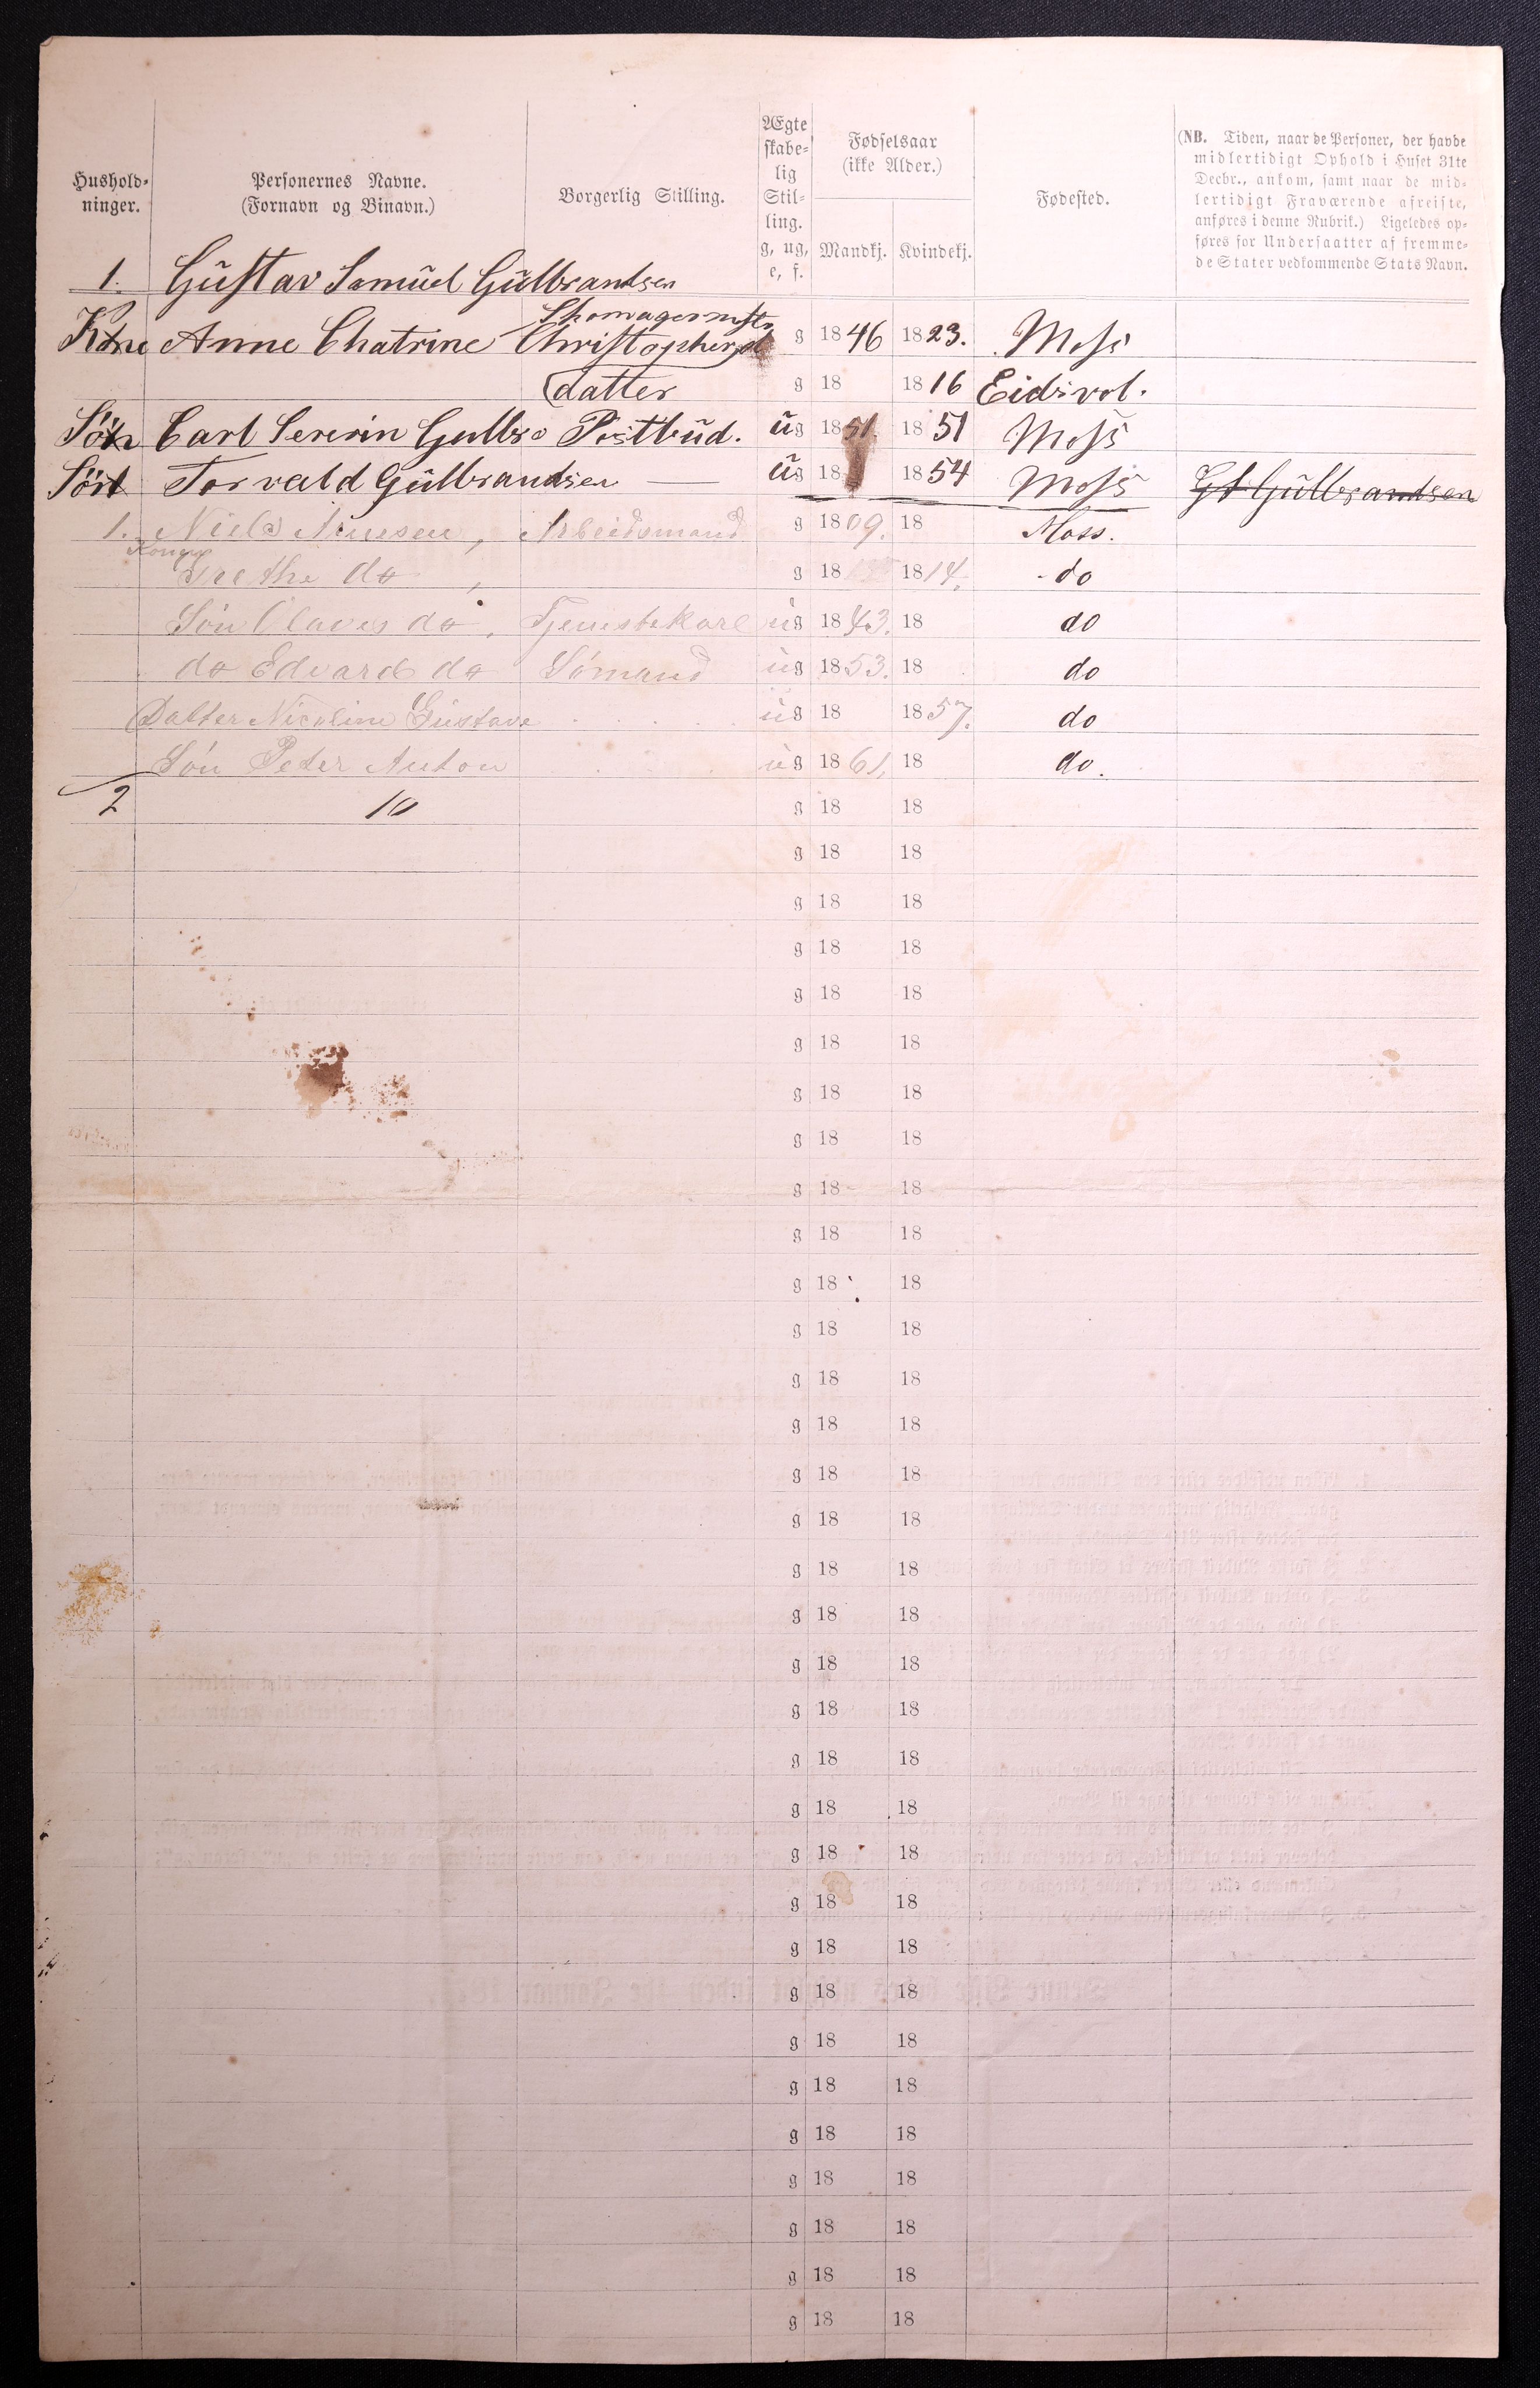 Hushold-ninger. Personernes Navne. (Fornavn og Binavn.) Borgerlig Stilling. Ægteskabe-lig Stil-ling. g, ug, e, f. Fødselsaar (ikke Alder.) Mandkj. Kvindekj. Fødested. (NB. Tiden, naar de Personer, der havde midlertidigt Ophold i Huset 31te Decbr., ankom, samt naar de mid-lertidigt Fraværende afreiste, anføres i denne Rubrik.) Ligeledes op-føres for Undersaatter af fremme-de Stater vedkommende Stats Navn.
1. Güstav Samüel Gülbrandsen
Skomagermstr
Kone Anne Chatrine Christophersd g 1846 1823. Moss
datter g 18 1816 Eidsvol.
Sön Carl Severin Gulbr Postbüd. üg 1851 1851 Moss
Sön Torvald Gülbrandsen — üg 18 1854 Moss Gs Gülbrandsen
1. Niels Arnesen, Arbeidsmand g 1809. 18 Moss.
Kone Grethe do, g 18 1814. do
Søn Olaves do, Tjenestekarl üg 1843. 18 do
do Edvard do Sømand üg 1853. 18 do
Datter Nicoline Gustava üg 18 1857. do
Søn Peter Anton üg 1861. 18 do.
2 10 g 18 18
g 18 18
g 18 18
g 18 18
g 18 18
g 18 18
g 18 18
g 18 18
g 18 18
g 18 18
g 18 18
g 18 18
g 18 18
g 18 18
g 18 18
g 18 18
g 18 18
g 18 18
g 18 18
g 18 18
g 18 18
g 18 18
g 18 18
g 18 18
g 18 18
g 18 18
g 18 18
g 18 18
g 18 18
g 18 18
g 18 18
g 18 18
g 18 18